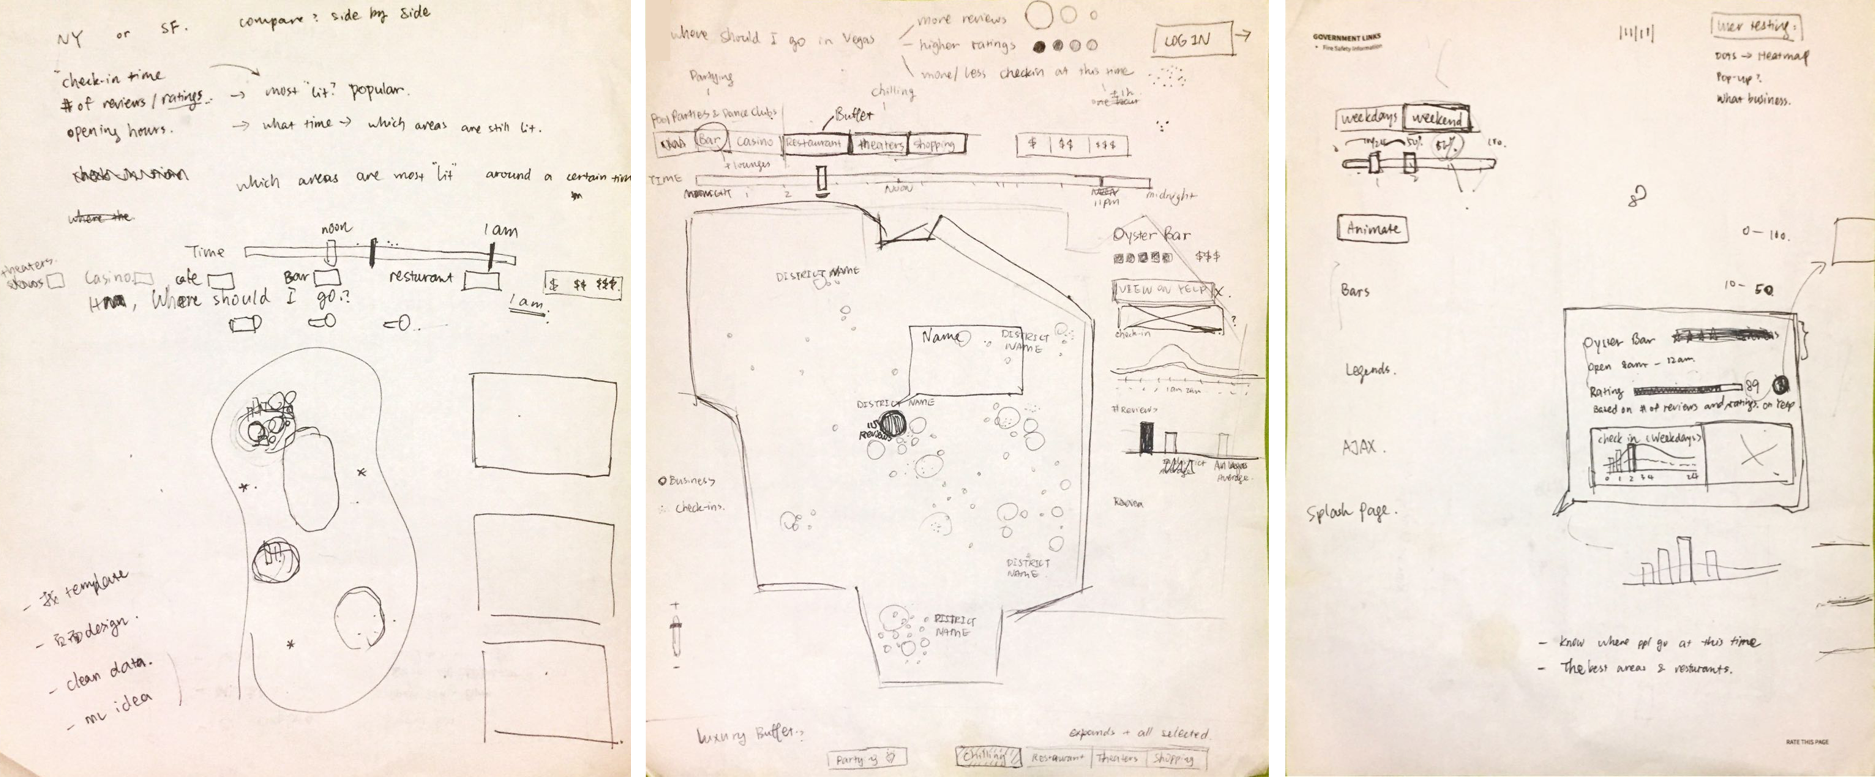 NY or SF. compare? side by side
"check-in time
# of reviews / ratings. → most "lit"? popular.
opening hours. → what time → which areas are still lit.
which areas are most "lit" around a certain time
where the
noon
1 am
Time
theaters.
Casino
cafe
Bar
resturant
$ $$ $$$
Where should I go?
1 am
- 我 template
- 页面 design.
- clean data.
- ML idea
where should I go in Vegas
more reviews
higher ratings
more/less checkin at this time
LOG IN →
Partying
chilling
+ 1h
Pool Parties & Dance Clubs
Buffet
Bar
Casino
Restaurant
theaters
shopping
$ $$ $$$
+ lounges
TIME
1
2
NOON
11pm
midnight
DISTRICT NAME
Name
DISTRICT NAME
DISTRICT NAME
DISTRICT NAME
DISTRICT NAME
Oyster Bar
$$$
VIEW ON YELP X.
?
check-in
1am 2am
# Reviews
Average.
Business
check-ins.
+
-
Luxury Buffet?
expands + all selected.
Partying
Chilling
Restaurant
Theaters
Shopping
GOVERNMENT LINKS
• Fire Safety Information
User testing:
Dots → Heatmap
Pop-up?
What business.
weekdays
weekend
Animate
0 — 100.
Bars
10 — 50
Legends.
AJAX.
Splash Page.
Oyster Bar
Open 8am - 12am
Rating 89
Based on # of reviews and ratings on Yelp.
check in (weekdays)
0 1 2 3 4 24
- Know where ppl go at this time
- The best areas & resturants.
RATE THIS PAGE